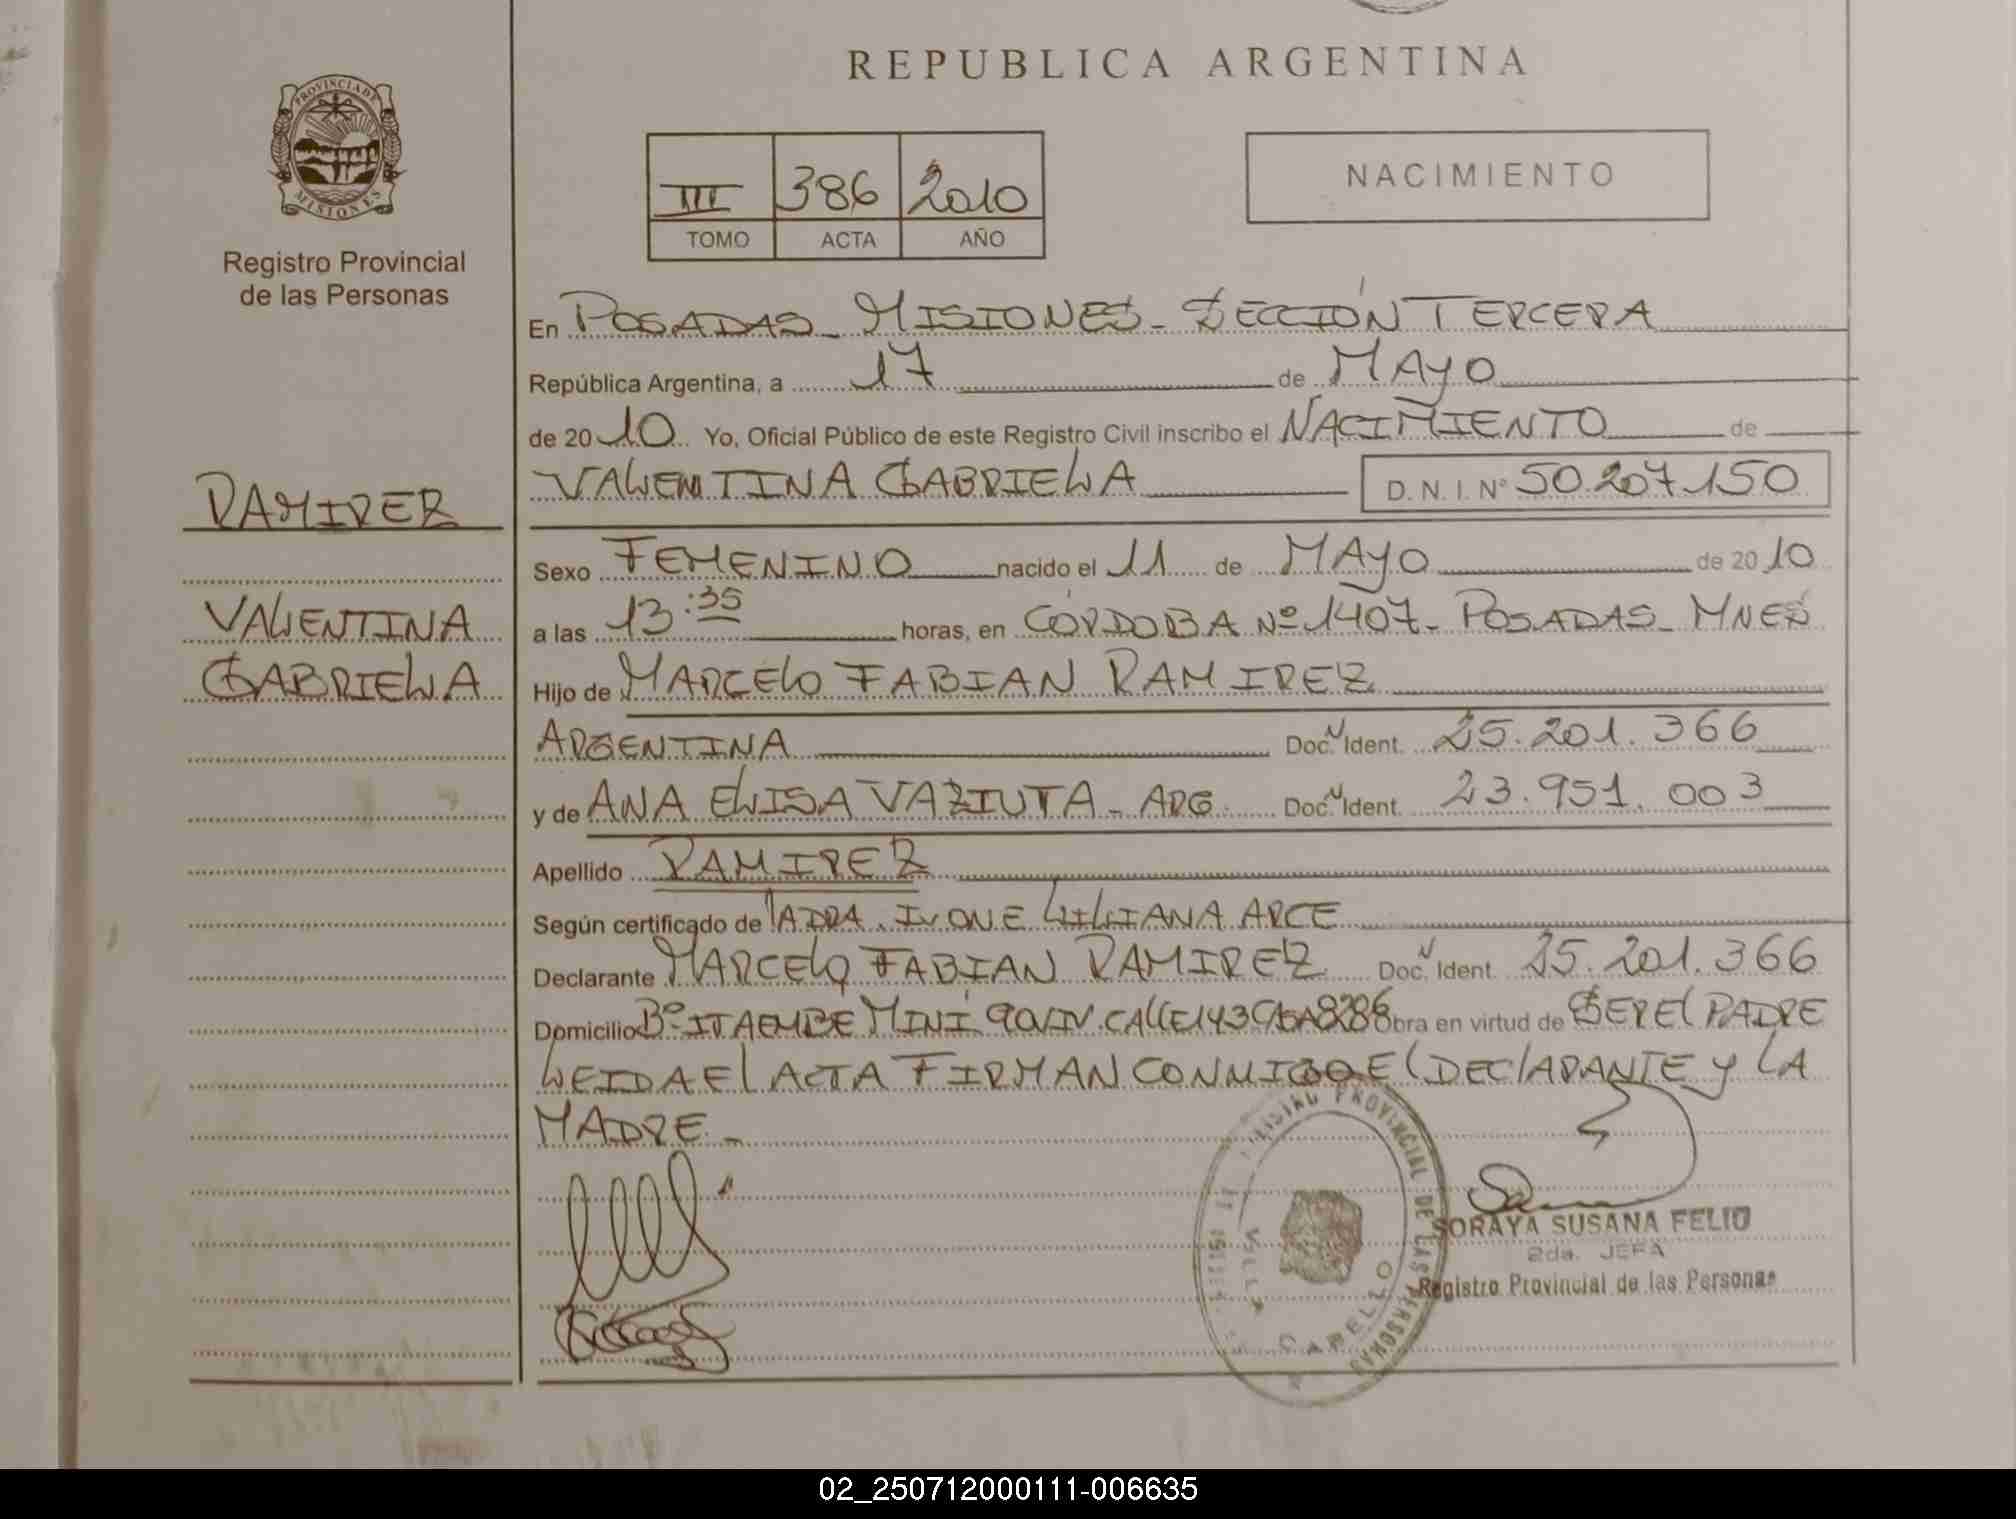 REPUBLICA ARGENTINA
PROVINCIA DE
MISIONES
Registro Provincial
de las Personas
III 386 2010
TOMO ACTA AÑO
NACIMIENTO
En POSADAS - MISIONES - SECCIÓN TERCERA
República Argentina, a 17 de MAYO
de 2010 Yo, Oficial Público de este Registro Civil inscribo el NACIMIENTO de
VALENTINA GABRIELA D. N. I. N° 50.207.150
RAMIREZ
VALENTINA
GABRIELA
Sexo FEMENINO nacido el 11 de MAYO de 2010
a las 13:35 horas, en CÓRDOBA Nº 1407 - POSADAS - MNES
Hijo de MARCELO FABIAN RAMIREZ
ARGENTINA Doc. Ident. 25.201.366
y de ANA ELISA VAZIUTA - ARG. Doc. Ident. 23.951.003
Apellido RAMIREZ
Según certificado de IVONE LILIANA ARCE
Declarante MARCELO FABIAN RAMIREZ Doc. Ident. 25.201.366
Domicilio Bº ITAEMBE MINÍ CALLE 143 8286 obra en virtud de SER EL PADRE
LEIDA EL ACTA FIRMAN CONMIGO EL DECLARANTE Y LA
MADRE -
REGISTRO PROVINCIAL DE LAS PERSONAS
VILLA CABELLO
SORAYA SUSANA FELIU
2da. JEFA
Registro Provincial de las Personas
02_250712000111-006635